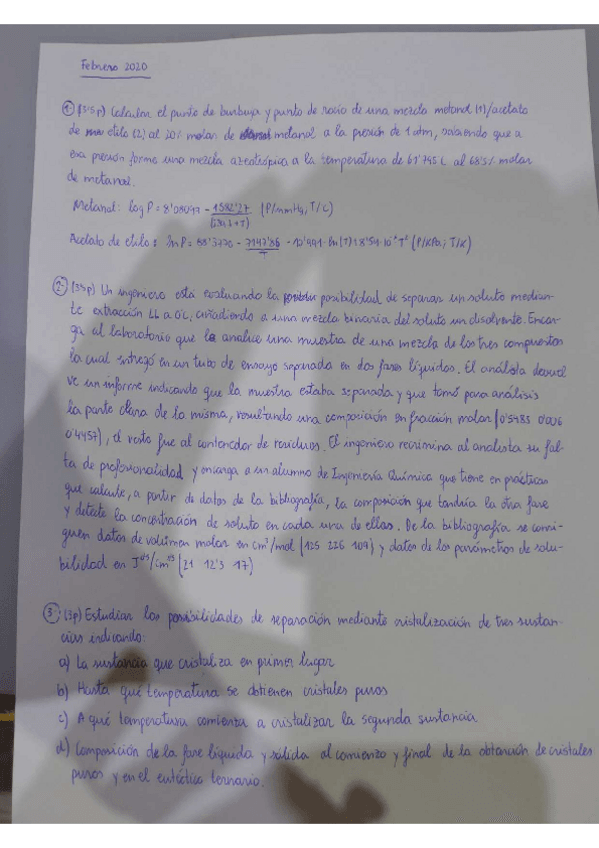 Febrero 2020
1- (3'5p) Calcular el punto de burbuja y punto de rocío de una mezcla metanol (1)/acetato
de etilo (2) al 20% molar de metanol a la presión de 1 atm, sabiendo que a
esa presión forma una mezcla azeotrópica a la temperatura de 61'745 C al 68'5% molar
de metanol.
Metanol: log P = 8'08097 - 1582'27 / (239,8+T) (P/mmHg, T/C)
Acetato de etilo: ln P = 88'3776 - 7147'86 / T - 10'991·ln(T) + 8'54·10⁻⁶ T² (P/KPa; T/K)
2- (3'5p) Un ingeniero está evaluando la posibilidad de separar un soluto median-
te extracción LL a 0°C, añadiendo a una mezcla binaria del soluto un disolvente. Encar-
ga al laboratorio que le analice una muestra de una mezcla de los tres compuestos
la cual entregó en un tubo de ensayo separada en dos fases líquidas. El analista devuel
ve un informe indicando que la muestra estaba separada y que tomó para análisis
la parte clara de la misma, resultando una composición en fracción molar (0'5483 0'006
0'4457), el resto fue al contenedor de residuos. El ingeniero recrimina al analista su fal-
ta de profesionalidad y encarga a un alumno de Ingeniería Química que tiene en prácticas
que calcule, a partir de datos de la bibliografía, la composición que tendría la otra fase
y detecte la concentración de soluto en cada una de ellas. De la bibliografía se consi-
guen datos de volúmen molar en cm³/mol (125 226 109) y datos de los parámetros de solu-
bilidad en J⁰'⁵/cm¹'⁵ (21 12'3 17)
3- (3p) Estudiar las posibilidades de separación mediante cristalización de tres sustan-
cias indicando:
a) La sustancia que cristaliza en primer lugar
b) Hasta qué temperatura se obtienen cristales puros
c) A qué temperatura comienza a cristalizar la segunda sustancia
d) Composición de la fase líquida y sólida al comienzo y final de la obtención de cristales
puros y en el eutéctico ternario.